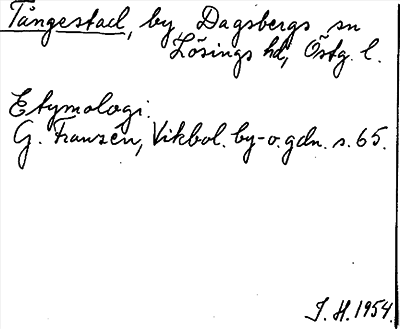 Tångestad, by, Dagsbergs sn
Lösings hd, Östg. l.
Etymologi:
G. Franzén, Vikbol. by- o. gdn. s. 65.
J. H. 1954.